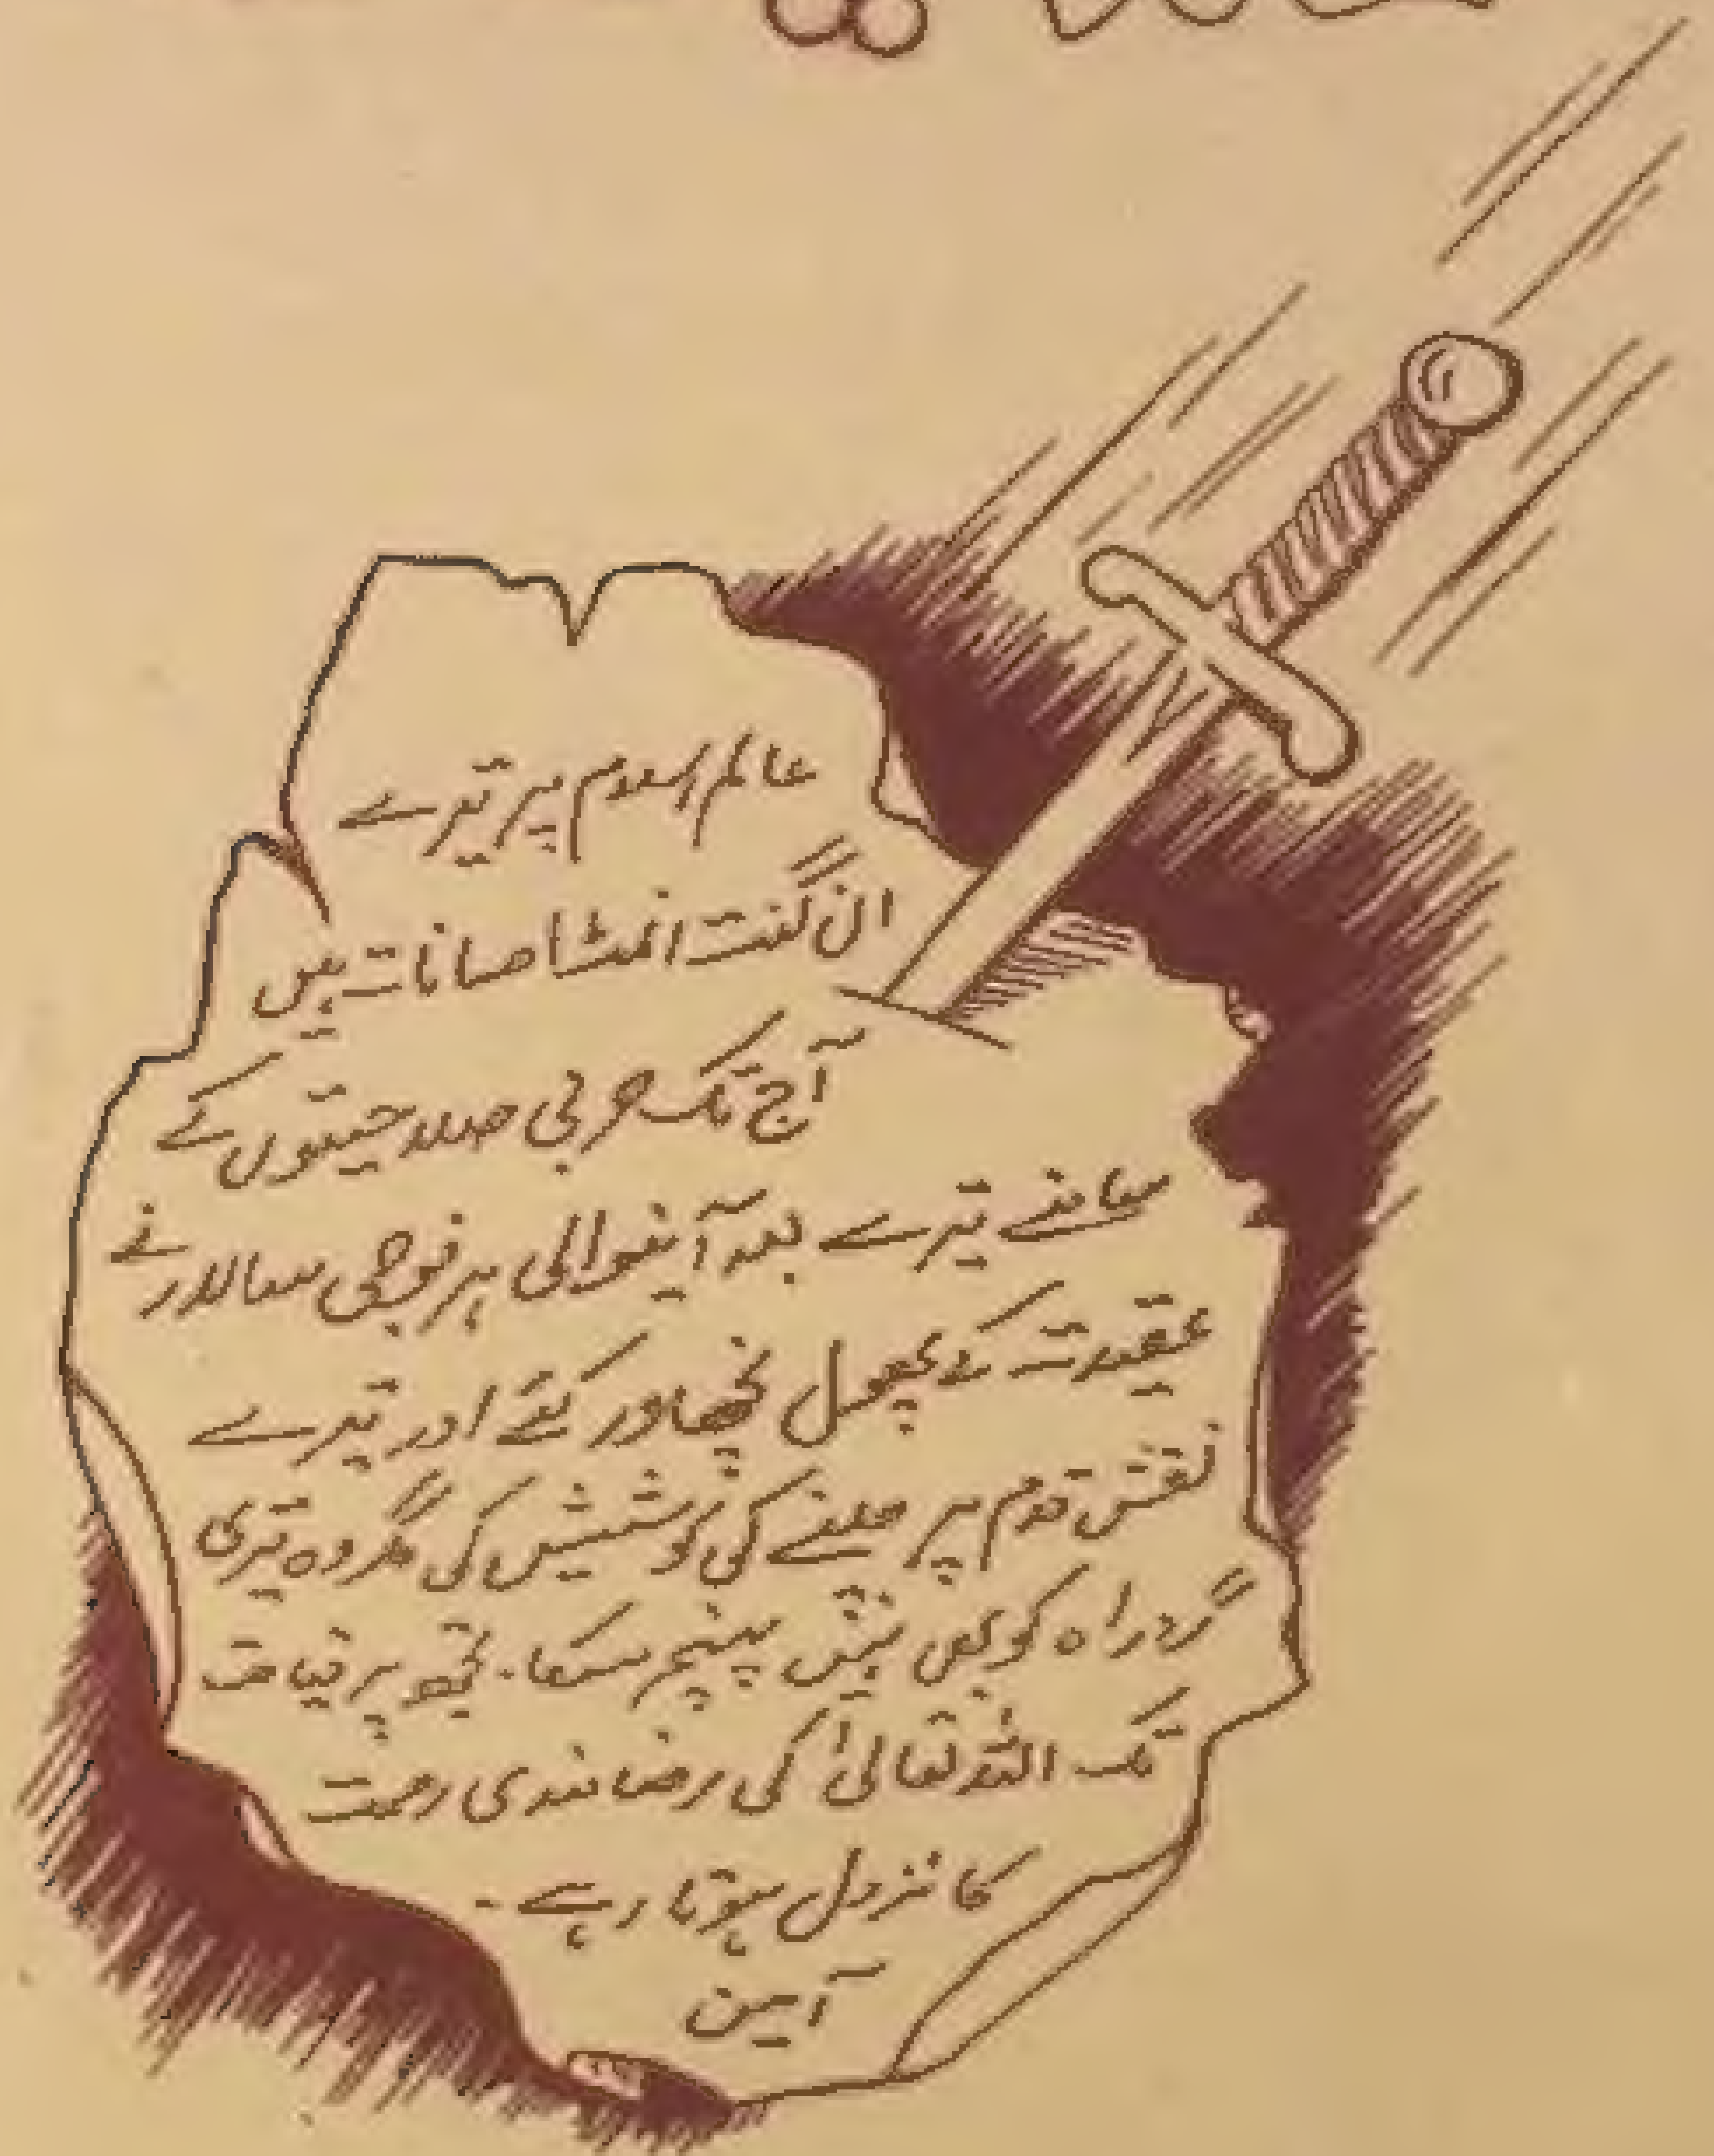 عالم اسلام پر تیرے
ان گنت احسانات ہیں
آج تک حربی صلاحیتوں کے
سامنے تیرے بعد آنیوالی ہر فوجی سالار نے
عقیدت کے پھول نچھاور کئے اور تیرے
نقش قدم پر چلنے کی کوشش کی مگر وہ تیری
گرد راہ کو بھی نہیں پہنچ سکا۔ تجھ پر قیامت
تک اللہ تعالیٰ کی رضا مندی رحمت
کا نزول ہوتا رہے ۔
آمین